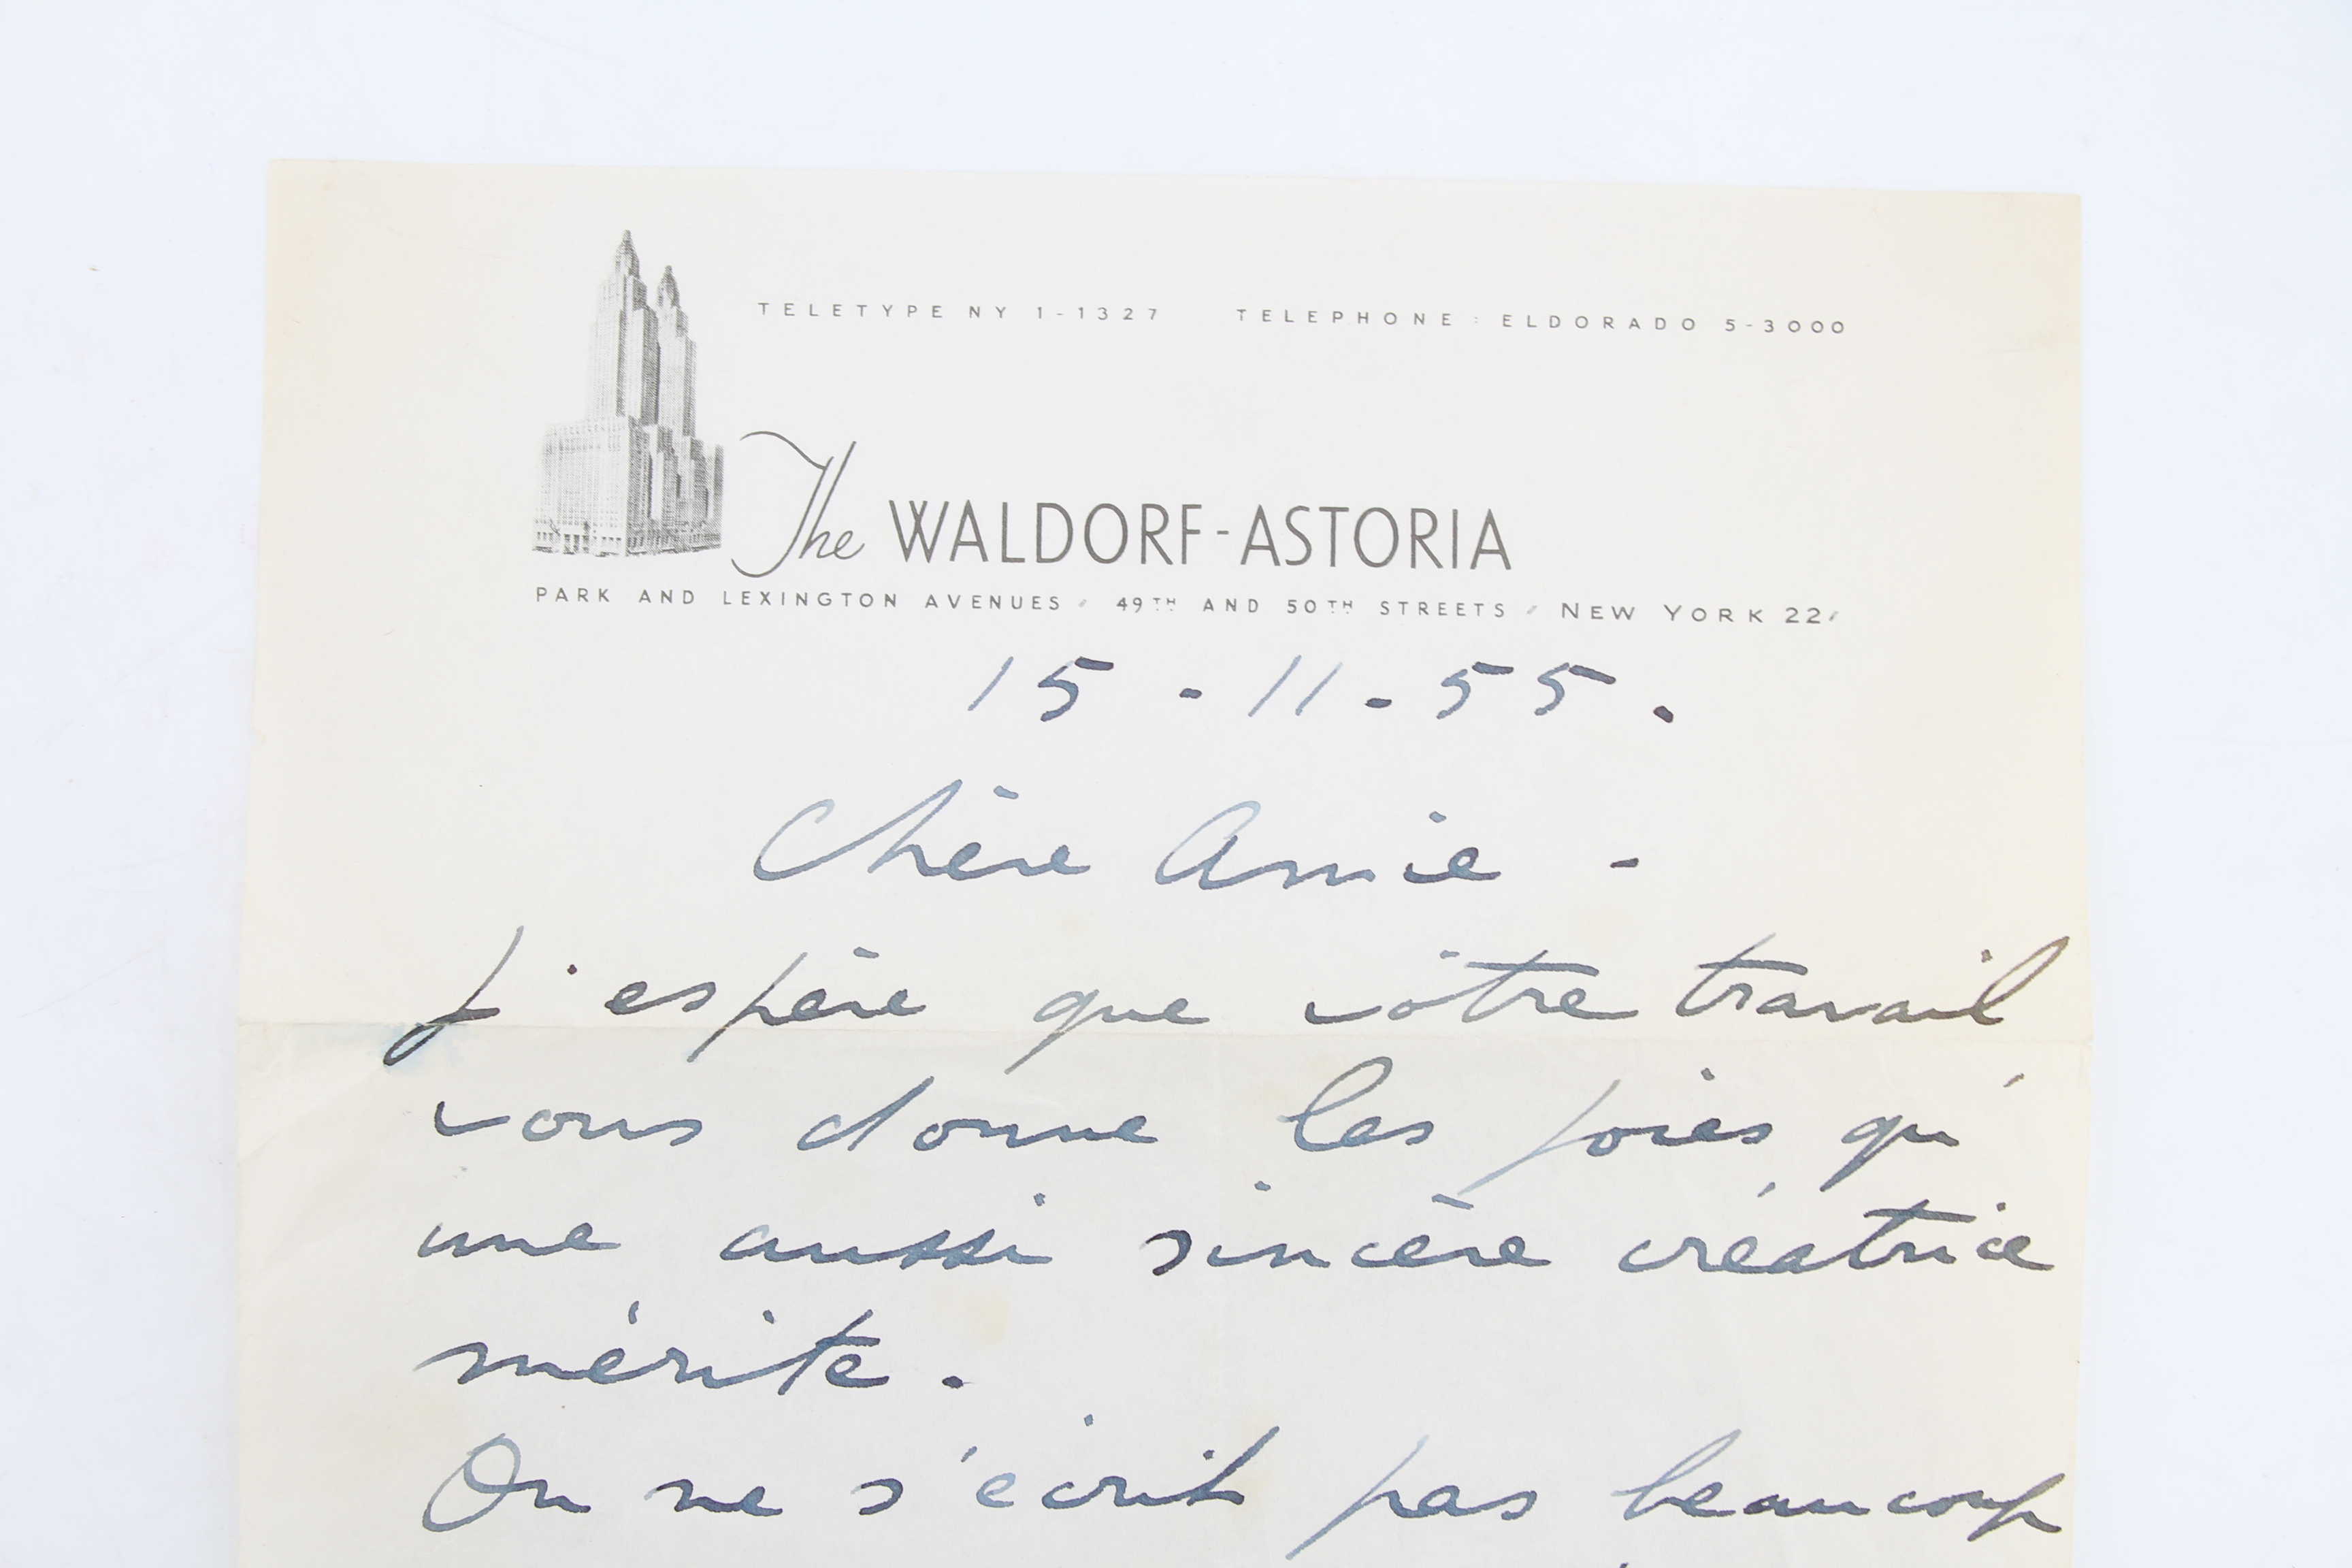 TELETYPE NY 1-1327 TELEPHONE: ELDORADO 5-3000
The WALDORF-ASTORIA
PARK AND LEXINGTON AVENUES 49TH AND 50TH STREETS NEW YORK 22
15 - 11 - 55.
Chère Amie -
J'espère que vôtre travail
vous donne les joies qu'
une aussi sincère créatrice
mérite.
On ne s'écrit pas beaucoup